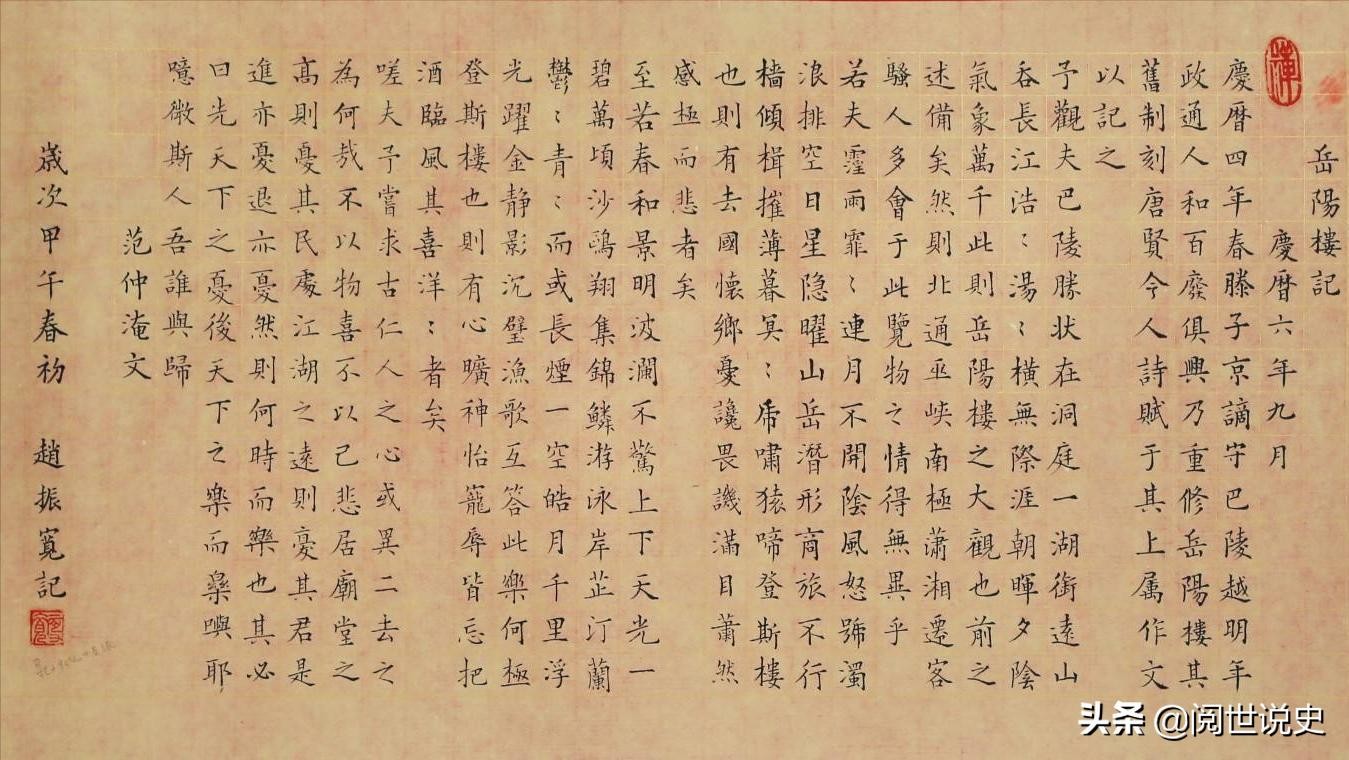 岳陽樓記
慶曆六年九月
慶曆四年春滕子京謫守巴陵越明年
政通人和百廢俱興乃重修岳陽樓其
舊制刻唐賢今人詩賦于其上属作文
以記之
予觀夫巴陵勝状在洞庭一湖銜遠山
吞長江浩〻湯〻橫無際涯朝暉夕陰
氣象萬千此則岳陽樓之大觀也前之
述備矣然則北通巫峽南極瀟湘遷客
騷人多會于此覽物之情得無異乎
若夫霪雨霏〻連月不開陰風怒號濁
浪排空日星隐曜山岳潛形商旅不行
檣傾楫摧薄暮冥〻虎嘯猿啼登斯樓
也則有去國懷鄉憂讒畏譏滿目蕭然
感極而悲者矣
至若春和景明波瀾不驚上下天光一
碧萬頃沙鷗翔集錦鱗游泳岸芷汀蘭
鬱〻青〻而或長煙一空皓月千里浮
光躍金静影沉璧漁歌互答此樂何極
登斯樓也則有心曠神怡寵辱皆忘把
酒臨風其喜洋〻者矣
嗟夫予嘗求古仁人之心或異二去之
為何哉不以物喜不以己悲居廟堂之
高則憂其民處江湖之遠則憂其君是
進亦憂退亦憂然則何時而樂也其必
曰先天下之憂後天下之樂而樂耶
噫微斯人吾誰與歸
范仲淹文
歲次甲午春初 趙振寬記
头条 @阅世说史